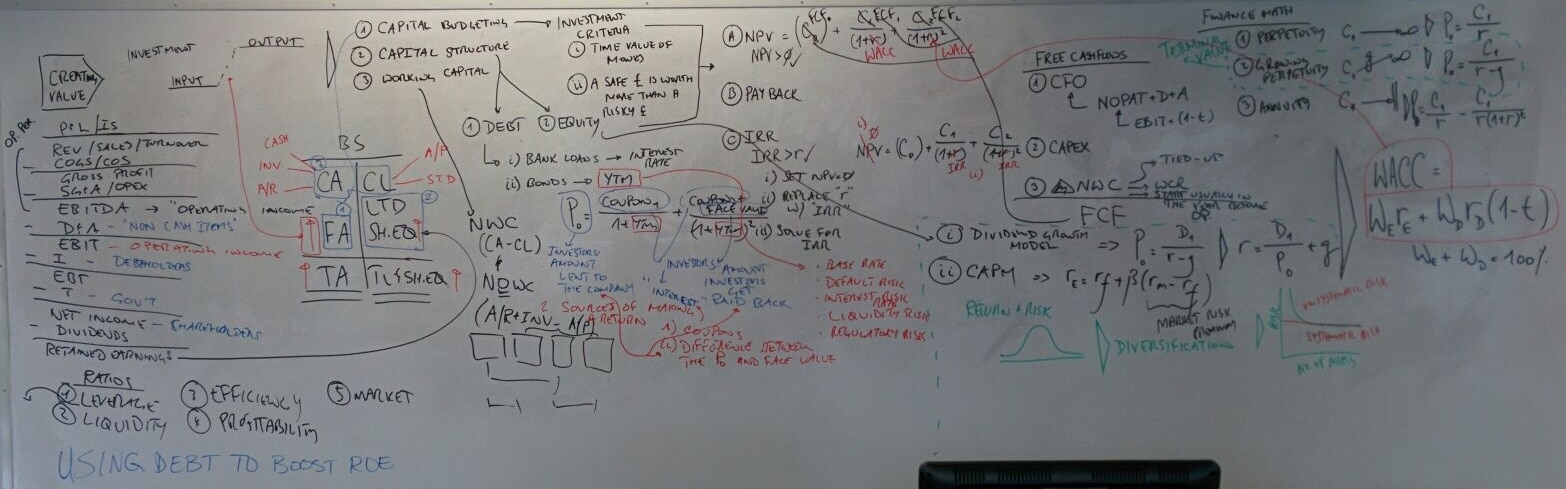 CREATING
VALUE
INVESTMENT
INPUT
OUTPUT
P&L/IS
REV/SALES/TURNOVER
COGS/COS
GROSS PROFIT
SG&A/OPEX
EBITDA → "OPERATING INCOME
- D+A - "NON CASH ITEMS"
EBIT - OPERATING INCOME
- I - DEBTHOLDERS
EBT
- T - GOV'T
NET INCOME - SHAREHOLDERS
- DIVIDENDS
RETAINED EARNINGS
RATIOS
① LEVERAGE
② LIQUIDITY
③ EFFICIENCY
④ PROFITABILITY
⑤ MARKET
USING DEBT TO BOOST ROE
BS
CASH
INV
A/R
CA
CL
A/P
STD
FA
LTD
SH.EQ
TA
TL & SH.EQ
① CAPITAL BUDGETING
② CAPITAL STRUCTURE
③ WORKING CAPITAL
INVESTMENT
CRITERIA
i) TIME VALUE OF
MONEY
ii) A SAFE £ IS WORTH
MORE THAN A
RISKY £
① DEBT ② EQUITY
i) BANK LOANS → INTEREST
RATE
ii) BONDS → YTM
P₀ = COUPON₁ / 1+YTM + COUPON+FACE VALUE / (1+YTM)²
INVESTORS'
AMOUNT
LENT TO
THE COMPANY
INVESTORS'
"INTEREST"
AMOUNT
INVESTORS
GET
PAID BACK
2 SOURCES OF MAKING
A RETURN
i) COUPONS
ii) DIFFERENCE BETWEEN
THE P₀ AND FACE VALUE
NWC
(CA-CL)
NOWC
(A/R+INV-A/P)
• BASE RATE
• DEFAULT RISK
• INTEREST RATE RISK
• LIQUIDITY RISK
• REGULATORY RISK
Ⓐ NPV = (C₀) + C₁ / (1+r) + C₂ / (1+r)²
FCF₀ FCF₁ FCF₂
NPV>0 ✓
WACC WACC
Ⓑ PAYBACK
Ⓒ IRR
IRR>r ✓
i) SET NPV=0
ii) REPLACE "r"
W/ "IRR"
iii) SOLVE FOR
IRR
i) 0
NPV = (C₀) + C₁ / (1+r) + C₂ / (1+r)²
IRR ii) IRR
FREE CASHFLOWS
① CFO
NOPAT+D+A
EBIT×(1-t)
② CAPEX
③ △ NWC
TIED-UP
WCR
START USUALLY IN
THE YEAR BEFORE
OP.
FCF
i) DIVIDEND GROWTH
MODEL ⇒ P₀ = D₁ / r-g r = D₁ / P₀ + g
ii) CAPM ⇒ rE = rf + β(rm - rf)
MARKET RISK
PREMIUM
RETURN & RISK
DIVERSIFICATION
RISK
UNSYSTEMATIC RISK
SYSTEMATIC RISK
NO. OF ASSETS
FINANCE MATH
① PERPETUITY C₁ → ∞ P₀ = C₁ / r
TERMINAL
VALUE
② GROWING
PERPETUITY C₁ g → ∞ P₀ = C₁ / r-g
③ ANNUITY C₁ → P₀ = C₁ / r - C₁ / r(1+r)ᵗ
WACC =
WE rE + WD rD (1-t)
WE + WD = 100%